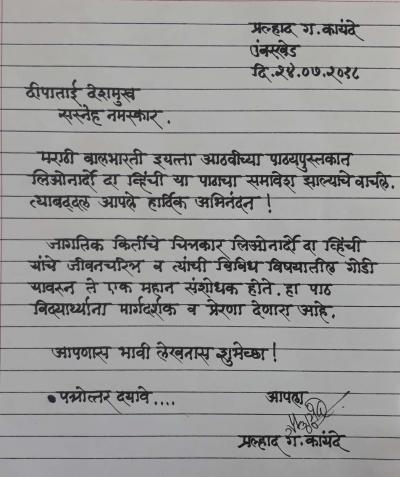 प्रल्हाद ग. कायंदे
दि. २४.०७.२०१८
दीपाताई देशमुख
सस्नेह नमस्कार.
मराठी बालभारती इयत्ता आठवीच्या पाठ्यपुस्तकात
लिओनार्दो दा व्हिंची या पाठाचा समावेश झाल्याचे वाचले.
त्याबद्दल आपले हार्दिक अभिनंदन!
जागतिक किर्तीचे चित्रकार लिओनार्दो दा व्हिंची
यांचे जीवनचरित्र व त्यांची विविध विषयातील गोडी
यावरुन ते एक महान संशोधक होते. हा पाठ
विद्यार्थ्यांना मार्गदर्शक व प्रेरणा देणारा आहे.
आपणास भावी लेखनास शुभेच्छा!
• पत्रोत्तर द्यावे.... आपला
प्रल्हाद ग. कायंदे